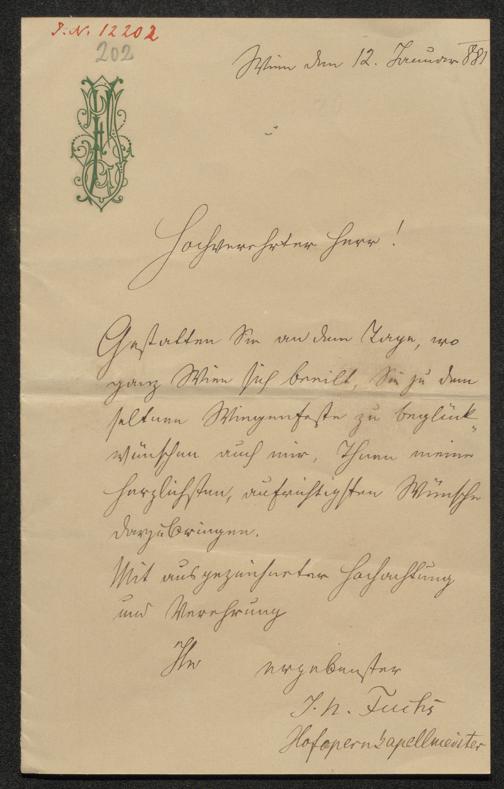 I.N. 12202
202
Wien den 12. Januar 881
Hochverehrter Herr!
Gestatten Sie an dem Tage, wo
ganz Wien sich beeilt, Sie zu dem
seltnen Wiegenfeste zu beglück-
wünschen auch mir, Ihnen meine
herzlichsten, aufrichtigsten Wünsche
darzubringen.
Mit ausgezeichneter Hochachtung
und Verehrung
Ihr ergebenster
J. N. Fuchs
Hofopernkapellmeister